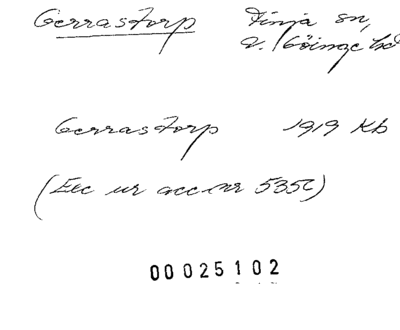 Gerrastorp Finja sn,
V. Göinge hd
Gerrastorp 1919 Kb
(Exc ur acc nr 5352)
00025102